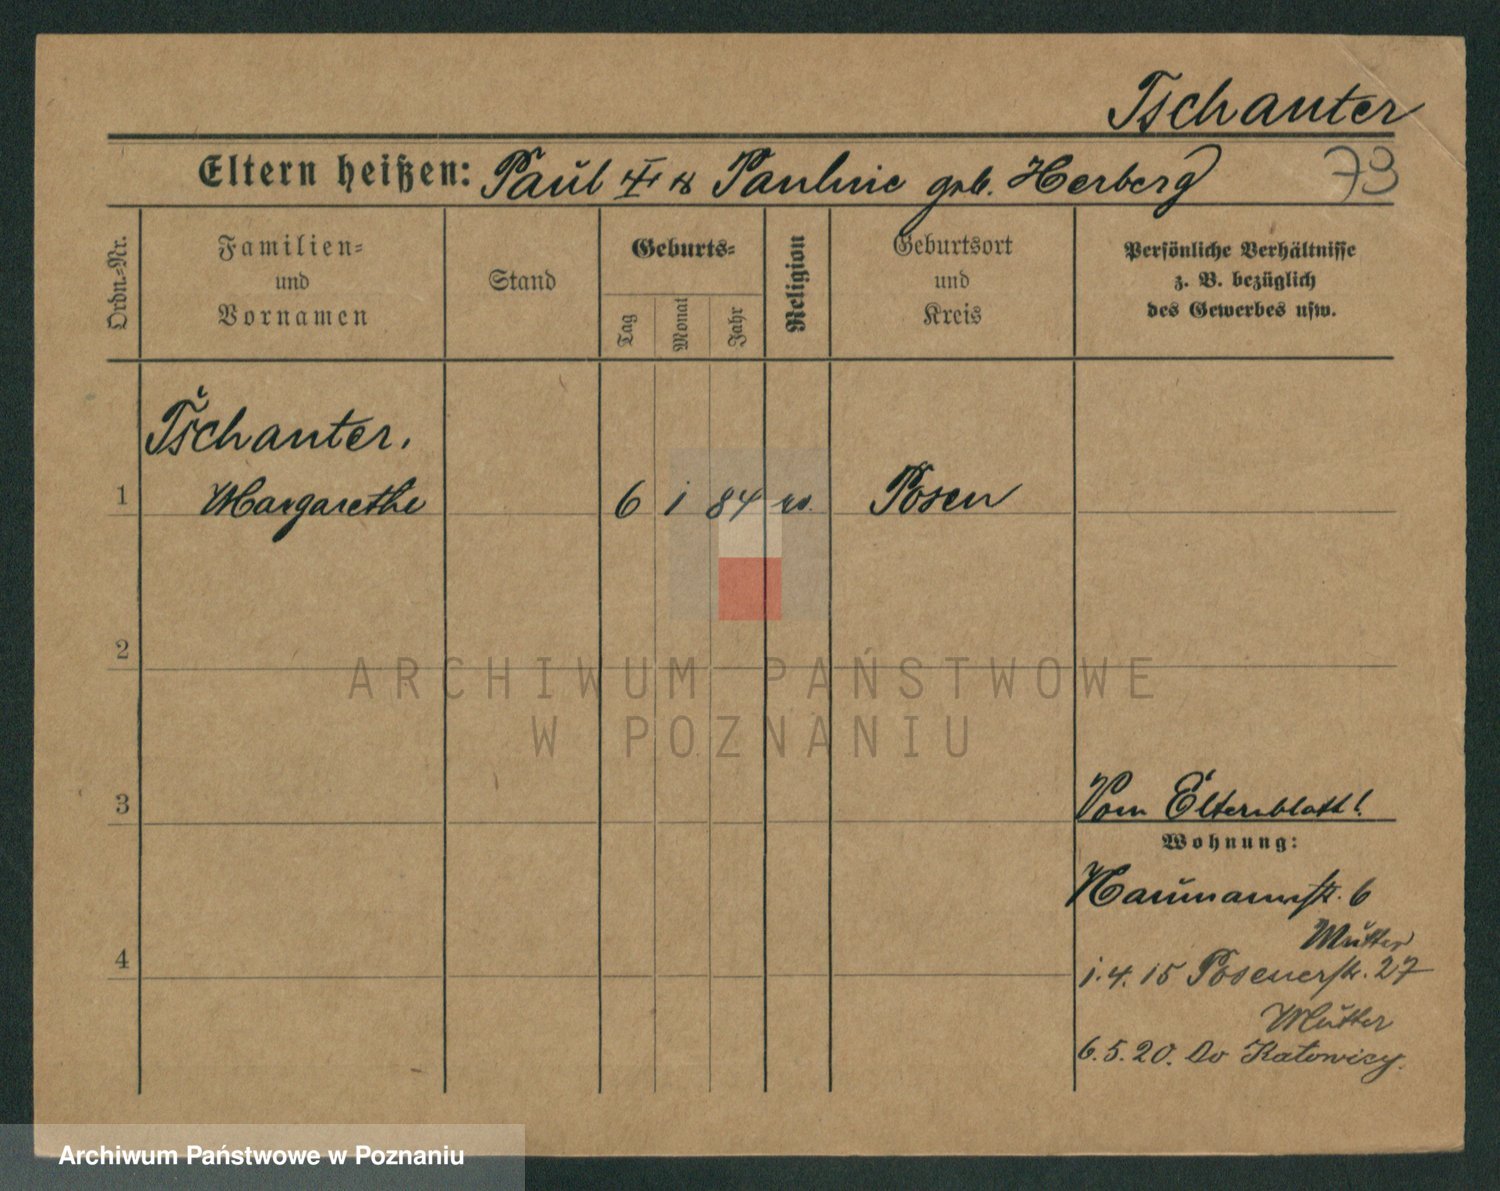 Tschanter
Eltern heißen: Paul u Pauline geb. Herberg
73
Ordn.-Nr.
Familien-
und
Vornamen
Stand
Geburts-
Tag
Monat
Jahr
Religion
Geburtsort
und
Kreis
Persönliche Verhältnisse
z. B. bezüglich
des Gewerbes usw.
Tschanter,
1 Margarethe 6 1 84 Posen
2
3
Vom Elternblatt!
Wohnung:
Naumannstr. 6
Mutter
4
1.4.15 Posenerstr. 27
Mutter
6.5.20. Do Katowicy.
ARCHIWUM PAŃSTWOWE
W POZNANIU
Archiwum Państwowe w Poznaniu